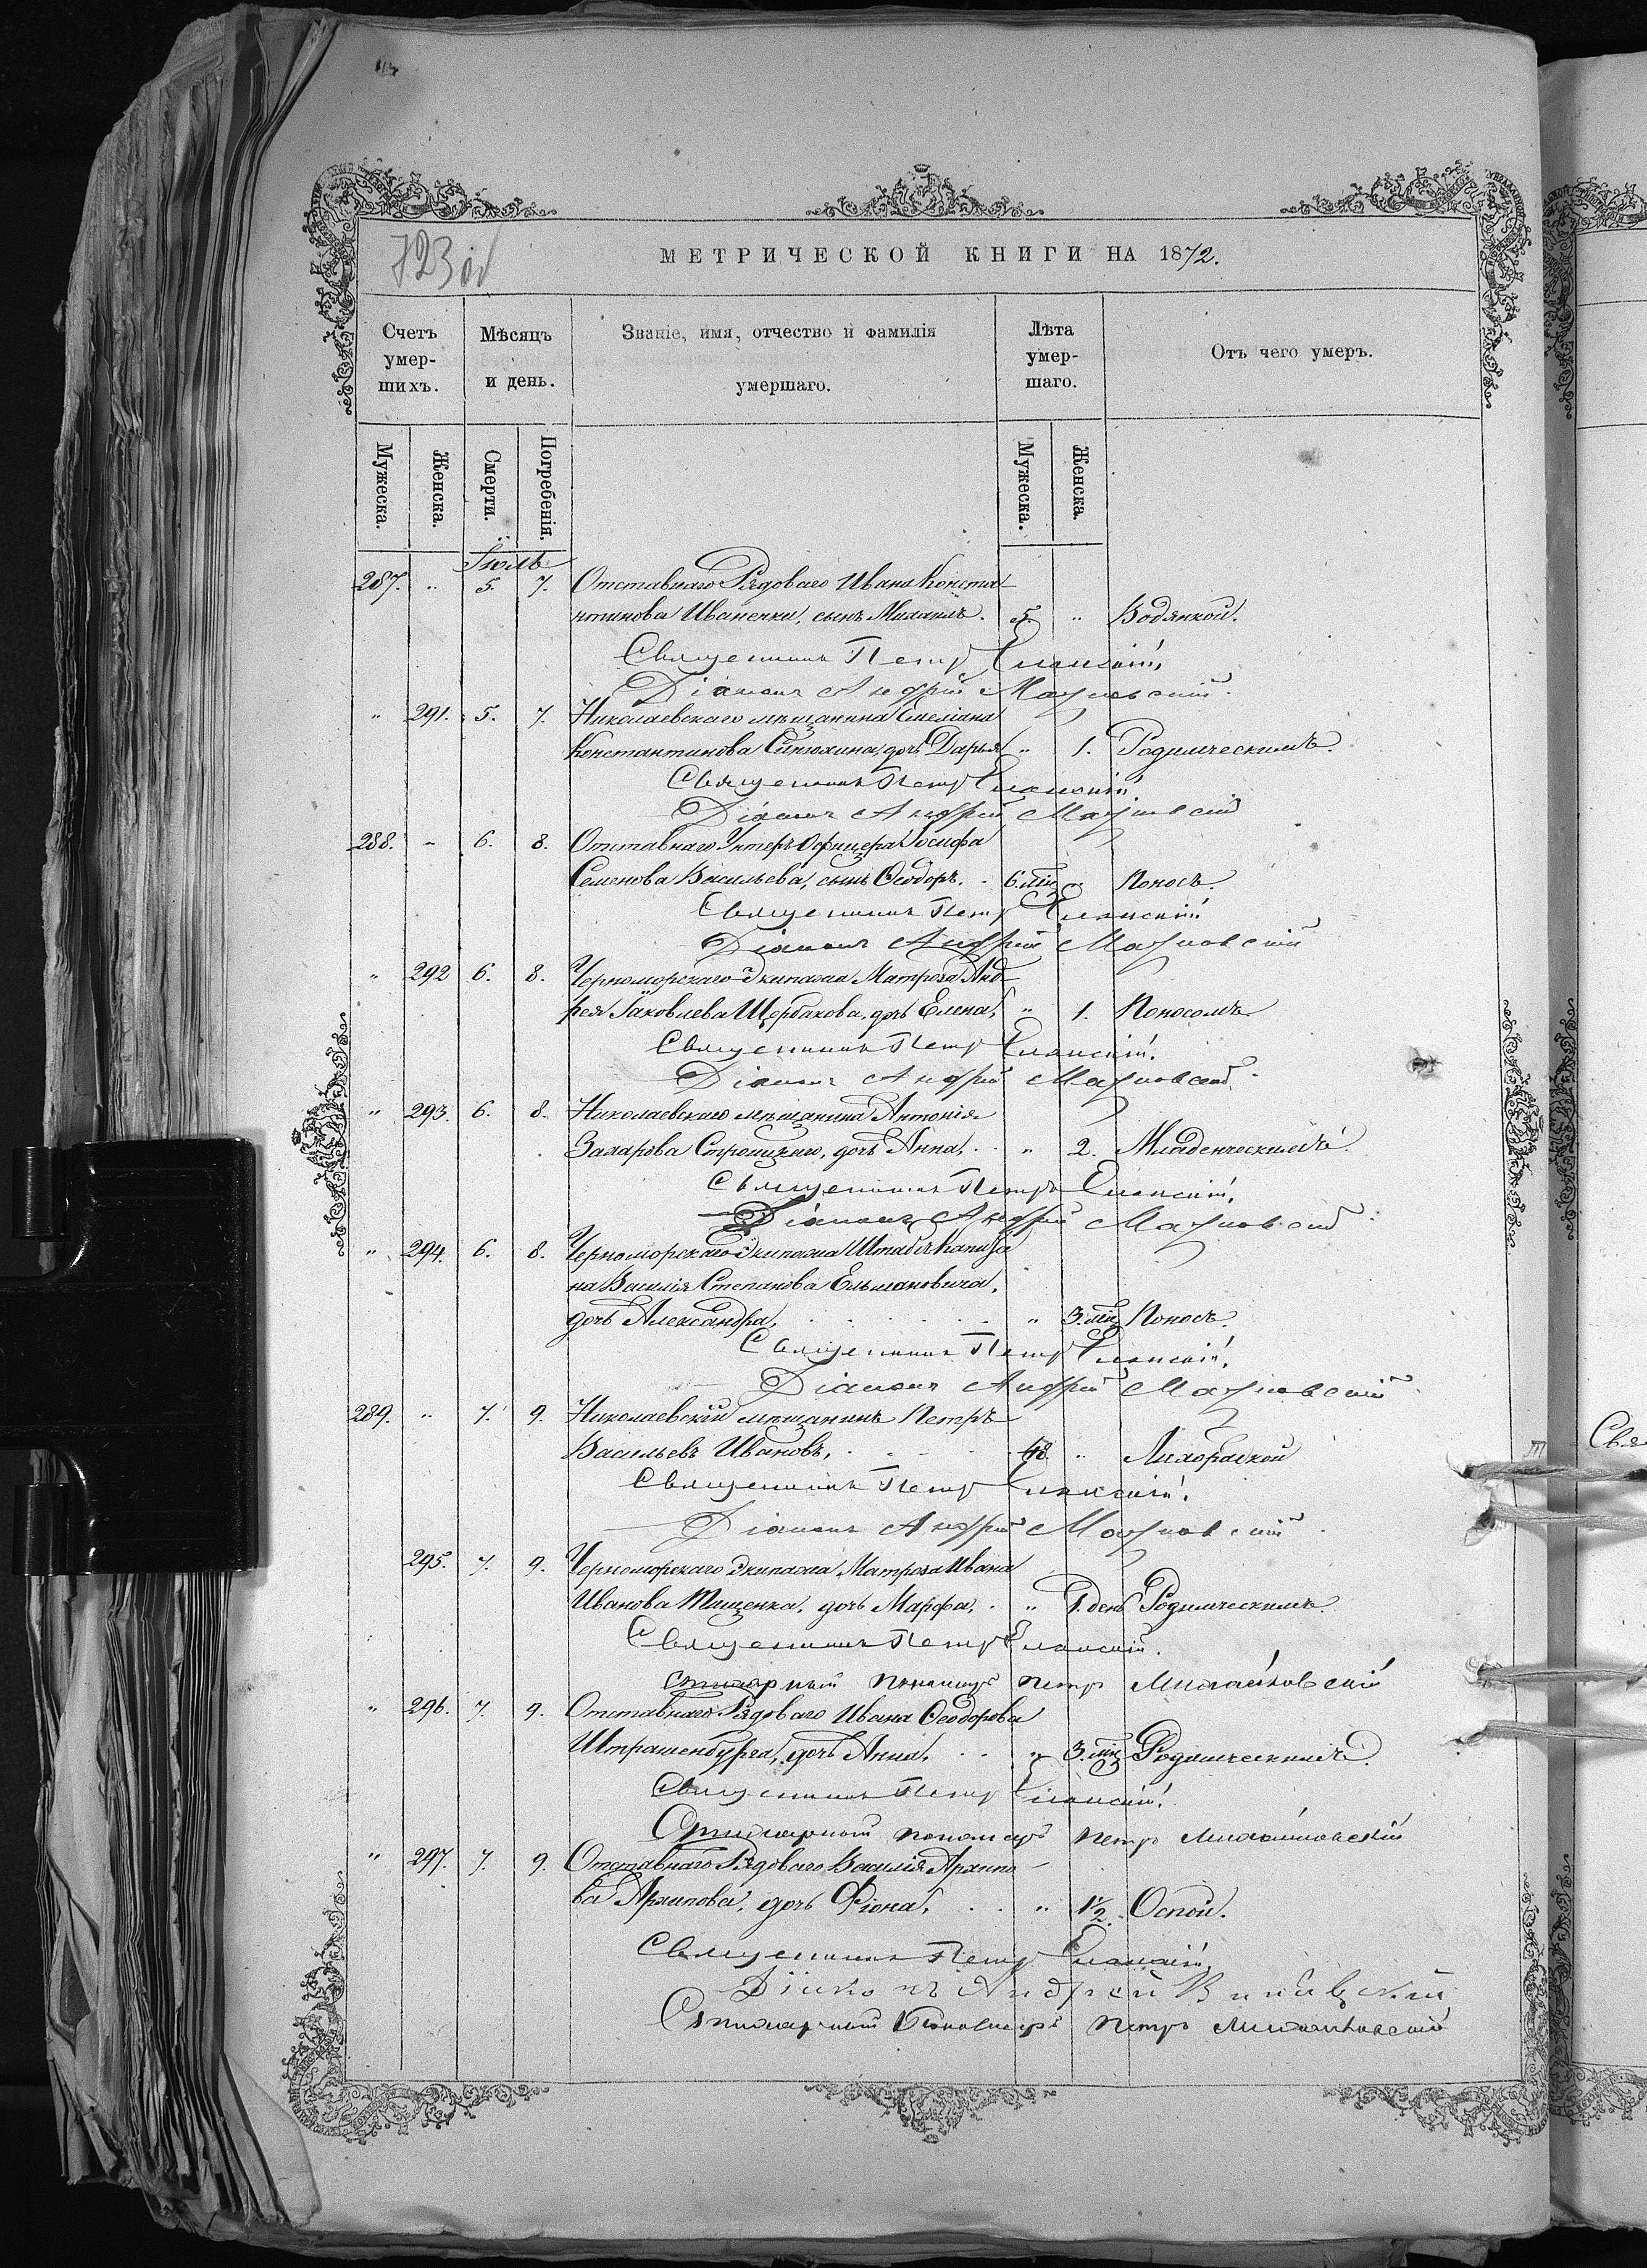 723 об
МЕТРИЧЕСКОЙ КНИГИ НА 1872.
Счетъ умер-шихъ. Мѣсяцъ и день. Званіе, имя, отчество и фамилія умершаго. Лѣта умер-шаго. Отъ чего умеръ.
Мужеска. Женска. Смерти. Погребенія. Мужеска. Женска.
Іюль
287. " 5. 7. Отставнаго Рядоваго Ивана Конста-
нтинова Иваненки, сынъ Михаилъ. 5. " Водянкой.
Священникъ Петръ Еланскій.
Діаконъ Андрей
" 291. 5. 7. Николаевскаго мѣщанина Емеліана
Константинова Синюхина, дочь Дарья " 1. Родимческимъ.
Священникъ Петръ Еланскій
Діаконъ Андрей
288. " 6. 8. Отставнаго Унтеръ Офицера Іосифа
Семенова Васильева, сынъ Ѳеодоръ. 6 мѣц " Поносъ.
Священникъ Петръ Еланскій
Діаконъ Андрей
" 292 6. 8. Черноморскаго Экипажа Матроза Анд-
рея Іаковлева Щербакова, дочь Елена, " 1. Поносомъ
Священникъ Петръ Еланскій.
Діаконъ Андрей
" 293. 6. 8. Николаевскаго мѣщанина Антонія
Захарова Строицкаго, дочь Анна. " 2. Младенческимъ.
Священникъ Петръ Еланскій.
Діаконъ Андрей
" 294. 6. 8. Черноморскаго Экипажа Штабсъ Капита-
на Василія Степанова Ельмановича,
дочь Александра, " 3. мѣц Поносъ.
Священникъ Петръ Еланскій.
Діаконъ Андрей
289. " 7. 9. Николаевскій мѣщанинъ Петръ
Васильевъ Ивановъ, 48. " Лихорадкой
Священникъ Петръ Еланскій.
Діаконъ Андрей
295. 7. 9. Черноморскаго Экипажа Матроза Ивана
Иванова Тищенка, дочь Марфа, " 1. день Родимческимъ.
Священникъ Петръ Еланскій.
Стихарный Пономарь Петръ Михайловскій
" 296. 7. 9. Отставнаго Рядоваго Ивана Ѳеодорова
Штрашенбурга, дочь Анна, " 3. мѣц Родимческимъ.
Священникъ Петръ Еланскій.
Стихарный пономарь Петръ Михайловскій
" 297. 7. 9. Отставнаго Рядоваго Василія Архипо-
ва Архипова, дочь Фіона, " 1/2. Оспой.
Священникъ Петръ Еланскій
Діаконъ Андрей
Стихарный Пономарь Петръ Михайловскій